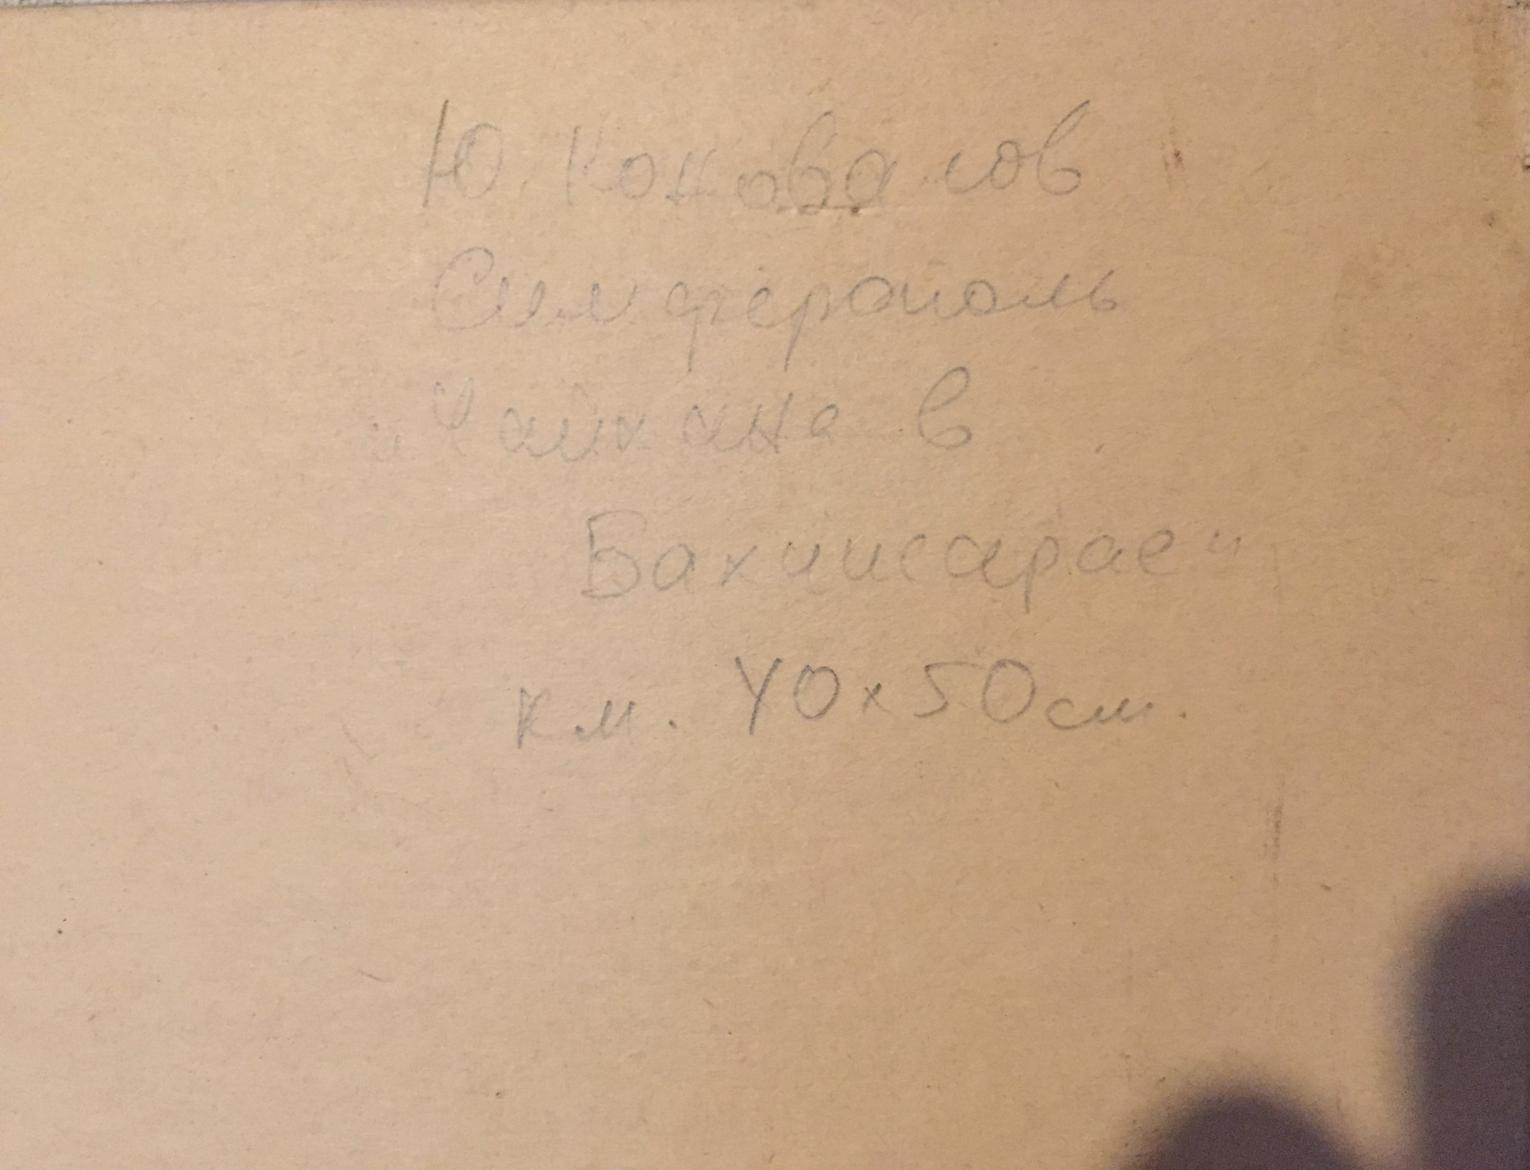 Ю. Коновалов
Симферополь
"Чайхана в
Бахчисарае"
к.м. 40x50см.